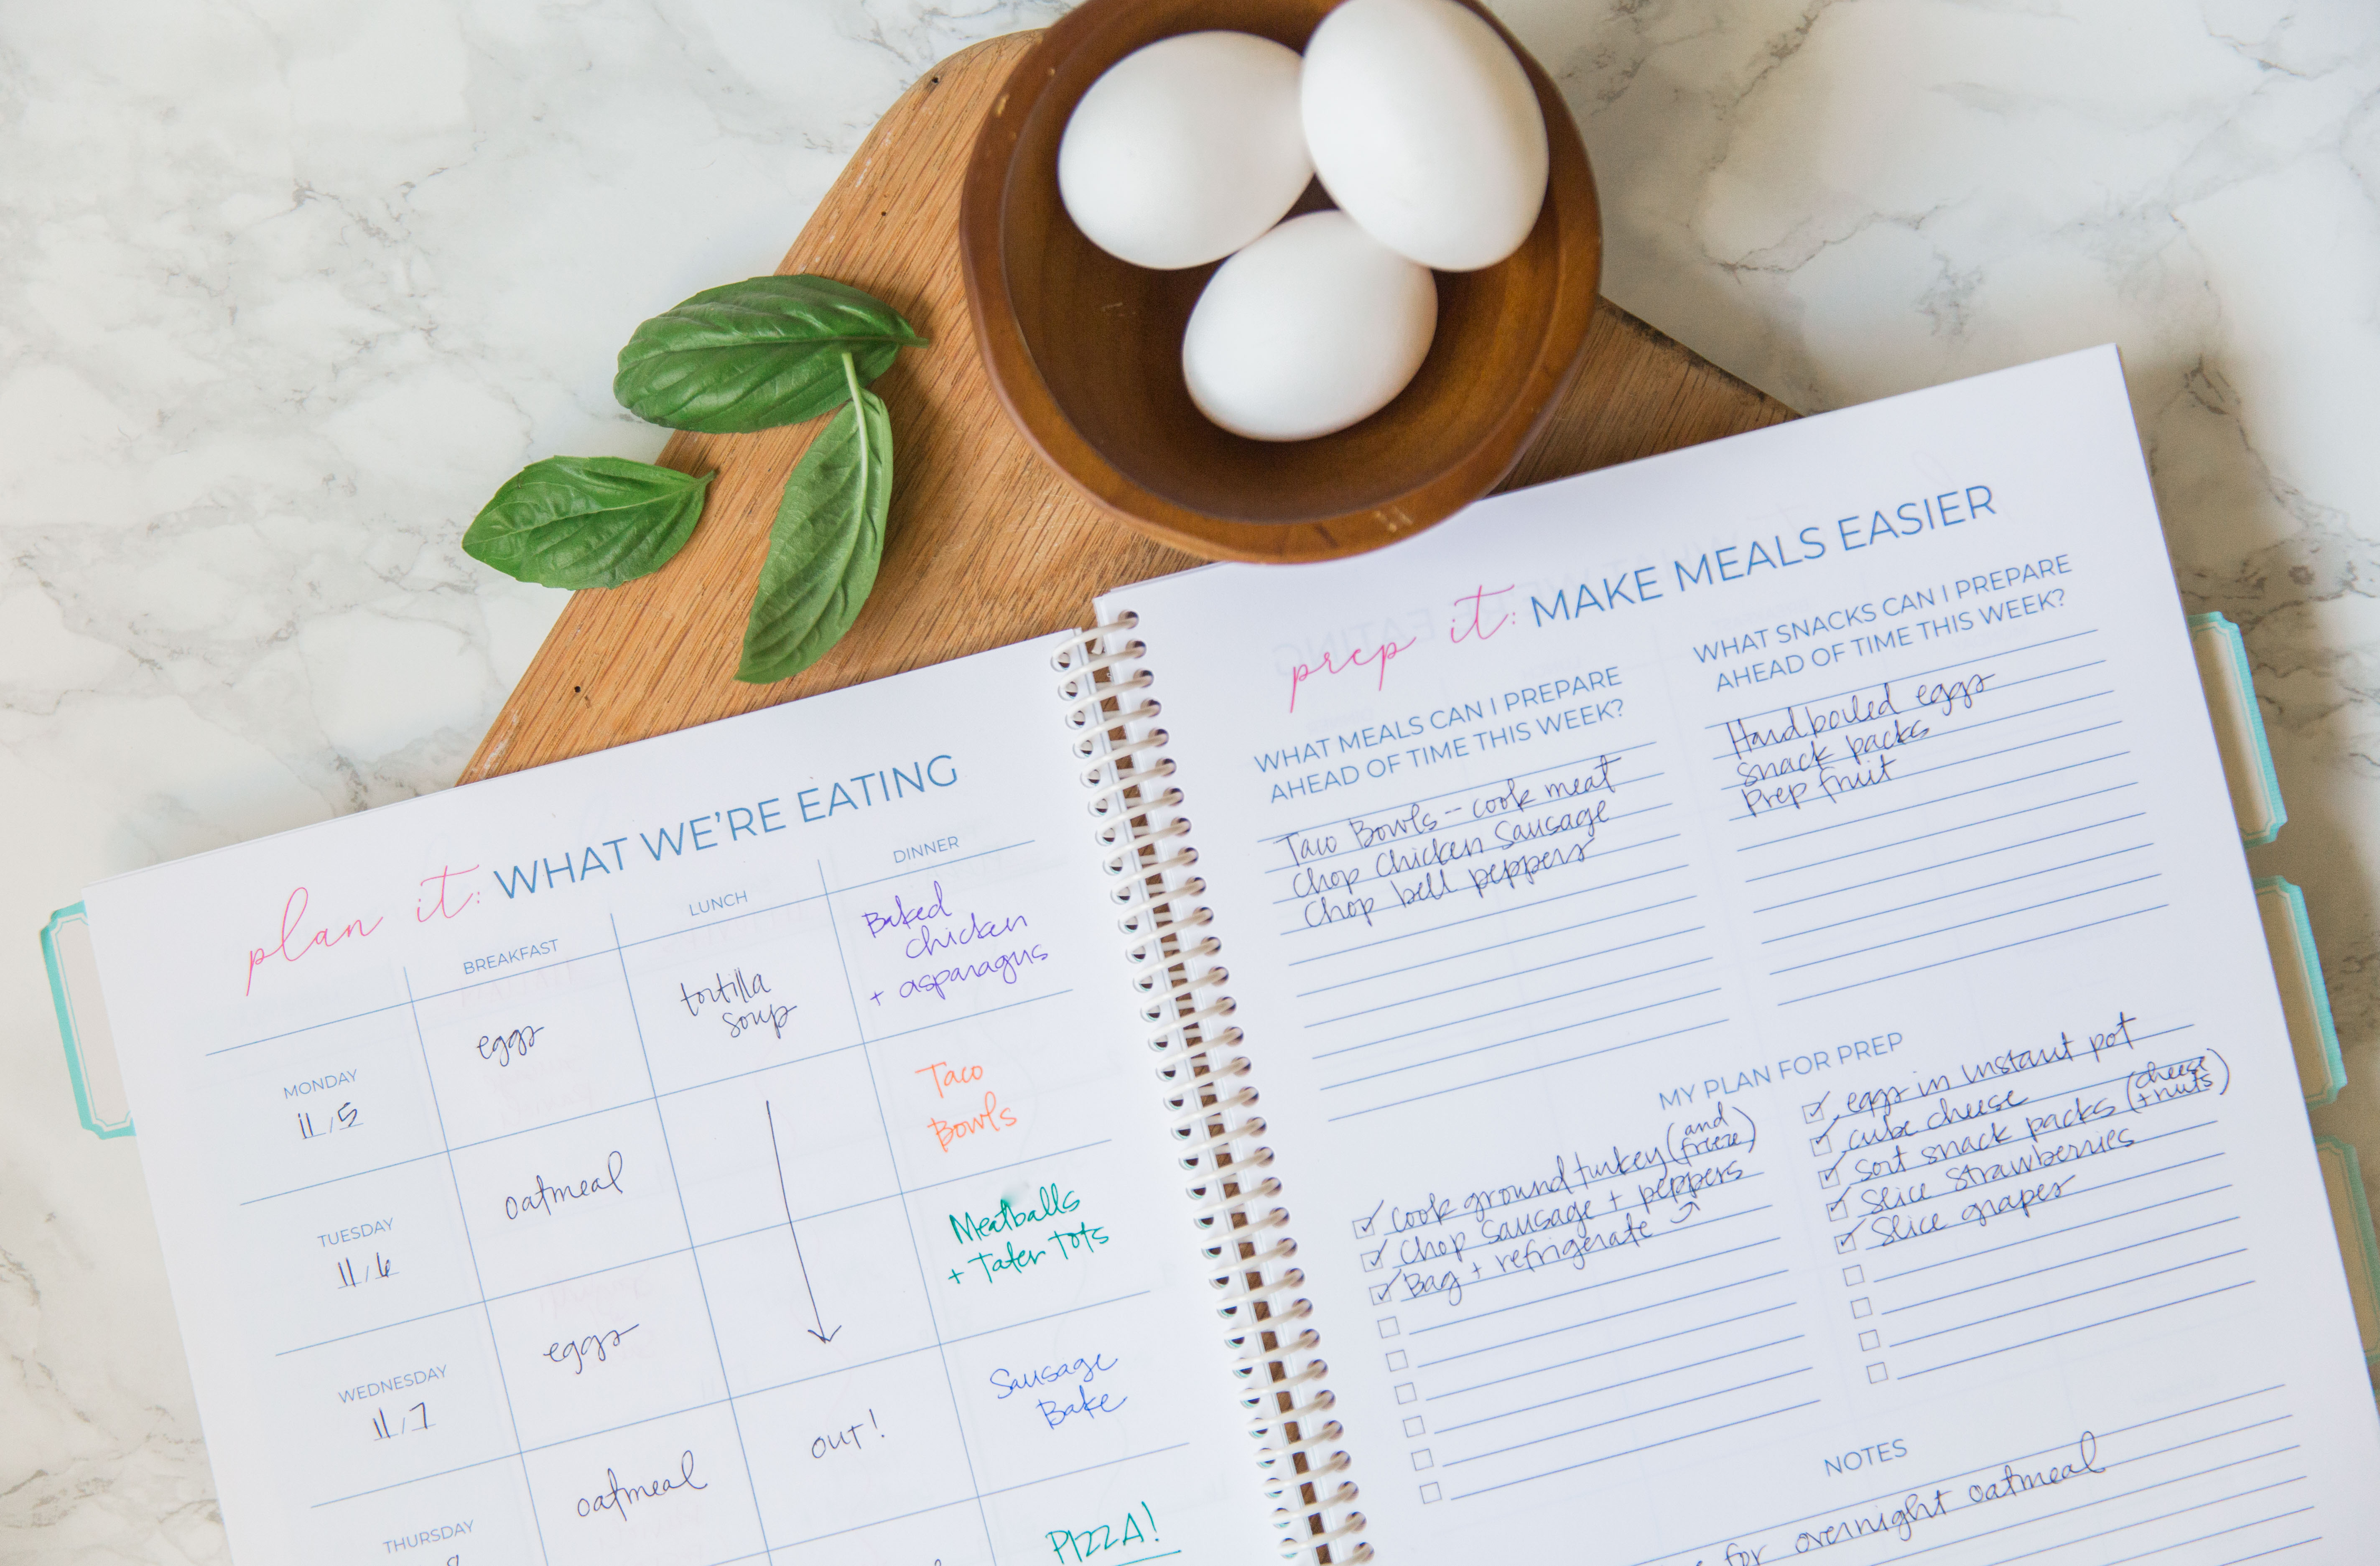 plan it: WHAT WE'RE EATING
BREAKFAST
LUNCH
DINNER
MONDAY
11/5
eggs
tortilla
soup
Baked
chicken
+ asparagus
TUESDAY
11/6
oatmeal
Taco
Bowls
WEDNESDAY
11/7
eggs
Meatballs
+ Tater Tots
THURSDAY
oatmeal
out!
Sausage
Bake
PIZZA!
prep it: MAKE MEALS EASIER
WHAT MEALS CAN I PREPARE
AHEAD OF TIME THIS WEEK?
Taco Bowls -- cook meat
Chop Chicken Sausage
Chop bell peppers
WHAT SNACKS CAN I PREPARE
AHEAD OF TIME THIS WEEK?
Hard boiled eggs
snack packs
Prep fruit
MY PLAN FOR PREP
cook ground turkey (and freeze)
Chop Sausage + peppers
Bag + refrigerate
eggs in instant pot
cube cheese
sort snack packs (cheese + nuts)
Slice strawberries
Slice grapes
NOTES
for overnight oatmeal